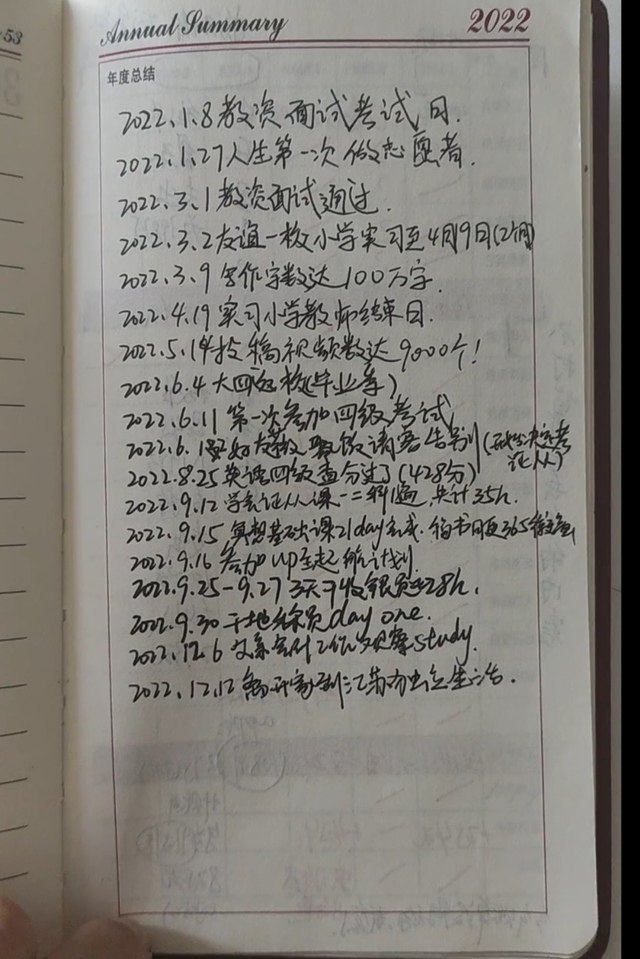 53
Annual Summary 2022
年度总结
2022.1.8教资面试考试日.
2022.1.27人生第一次做志愿者.
2022.3.1教资面试通过.
2022.3.2友谊一校小学实习至4月9日(2个月)
2022.3.9写作字数达100万字.
2022.4.19实习小学教师结束日.
2022.5.14投稿视频数达9000个!
2022.6.4大四返校(毕业季)
2022.6.11第一次参加四级考试
2022.6.1 好友 聚饭请客告别( 决定考
证从)
2022.8.25英语四级查分过了(428分)
2022.9.12学 证从课一二科1遍,共计35h.
2022.9.15冥想基础课21day完成.
2022.9.16参加up主起航计划.
2022.9.25-9.27 3天 收银员 28h.
2022.9.30 day one.
2022.12.6 study.
2022.12.12离开家到江苏 生活.